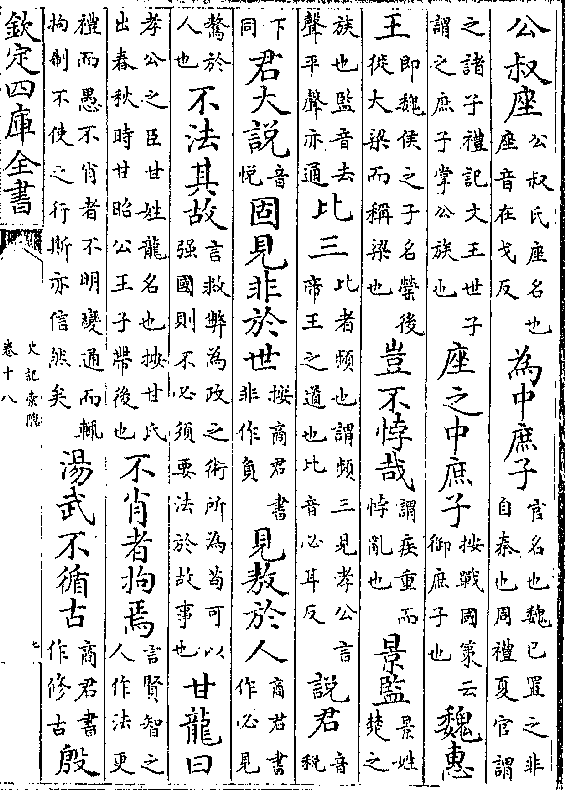 公叔座公叔氏座名也座音在戈反為中庶子官名也魏已置之非自秦也周禮夏官謂
之諸子禮記文王世子謂之庶子掌公族也座之中庶子按戰國策云御庶子也魏惠
王即魏侯之子名罃後徙大梁而稱梁也豈不悖哉謂疾重而悖亂也景監景姓楚之
族也監音去聲平聲亦通比三比者頻也謂頻三見孝公言帝王之道也比音必耳反說君音稅
下同君大說音悅固見非於世按商君書非作負見敖於人商君書作必見
驁於人也不法其故言救弊為政之術所為茍可以強國則不必須要法於故事也甘龍曰
孝公之臣甘姓龍名也按甘氏出春秋時甘昭公王子帶後也不肖者拘焉言賢智之人作法更
禮而愚不肖者不明變通而輒拘制不使之行斯亦信然矣湯武不循古商君書作修古殷
欽定四庫全書
史記索隱
卷十八
七